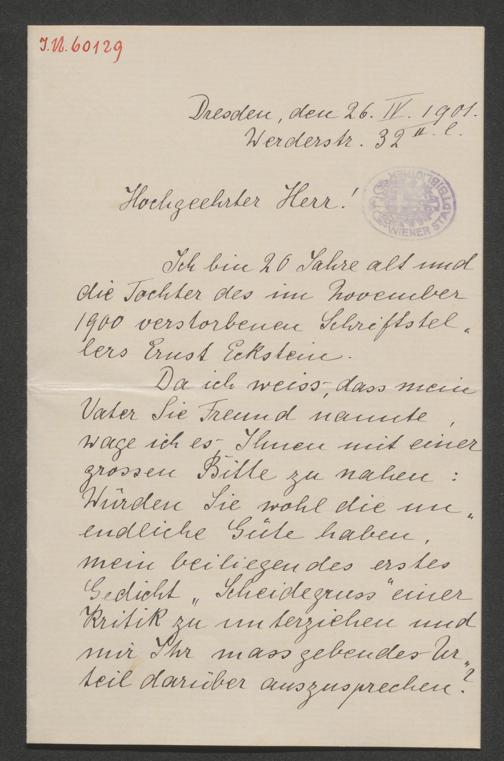 J.N. 60129
Dresden, den 26. IV. 1901.
Werderstr. 32 II. l.
WIENER STADTBIBLIOTHEK
Hochgeehrter Herr!
Ich bin 20 Jahre alt und
die Tochter des im November
1900 verstorbenen Schriftstel„
lers Ernst Eckstein.
Da ich weiss, dass mein
Vater Sie Freund nannte,
wage ich es, Ihnen mit einer
grossen Bitte zu nahen:
Würden Sie wohl die un„
endliche Güte haben,
mein beiliegendes erstes
Gedicht „Scheidegruss“ einer
Kritik zu unterziehen und
mir Ihr massgebendes Ur„
teil darüber auszusprechen?